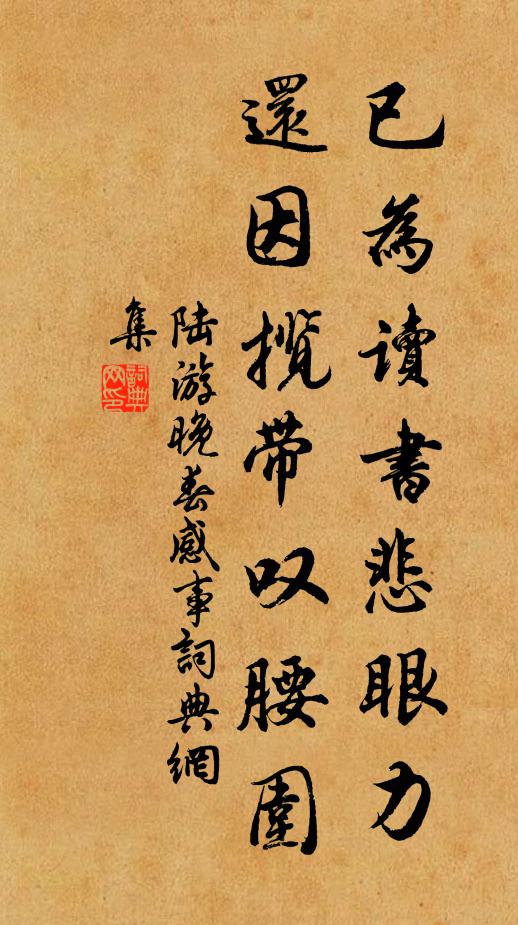 已為讀書悲眼力
還因攬帶叹腰圍
陸游晚春感事詞典網
集
詞典
网印